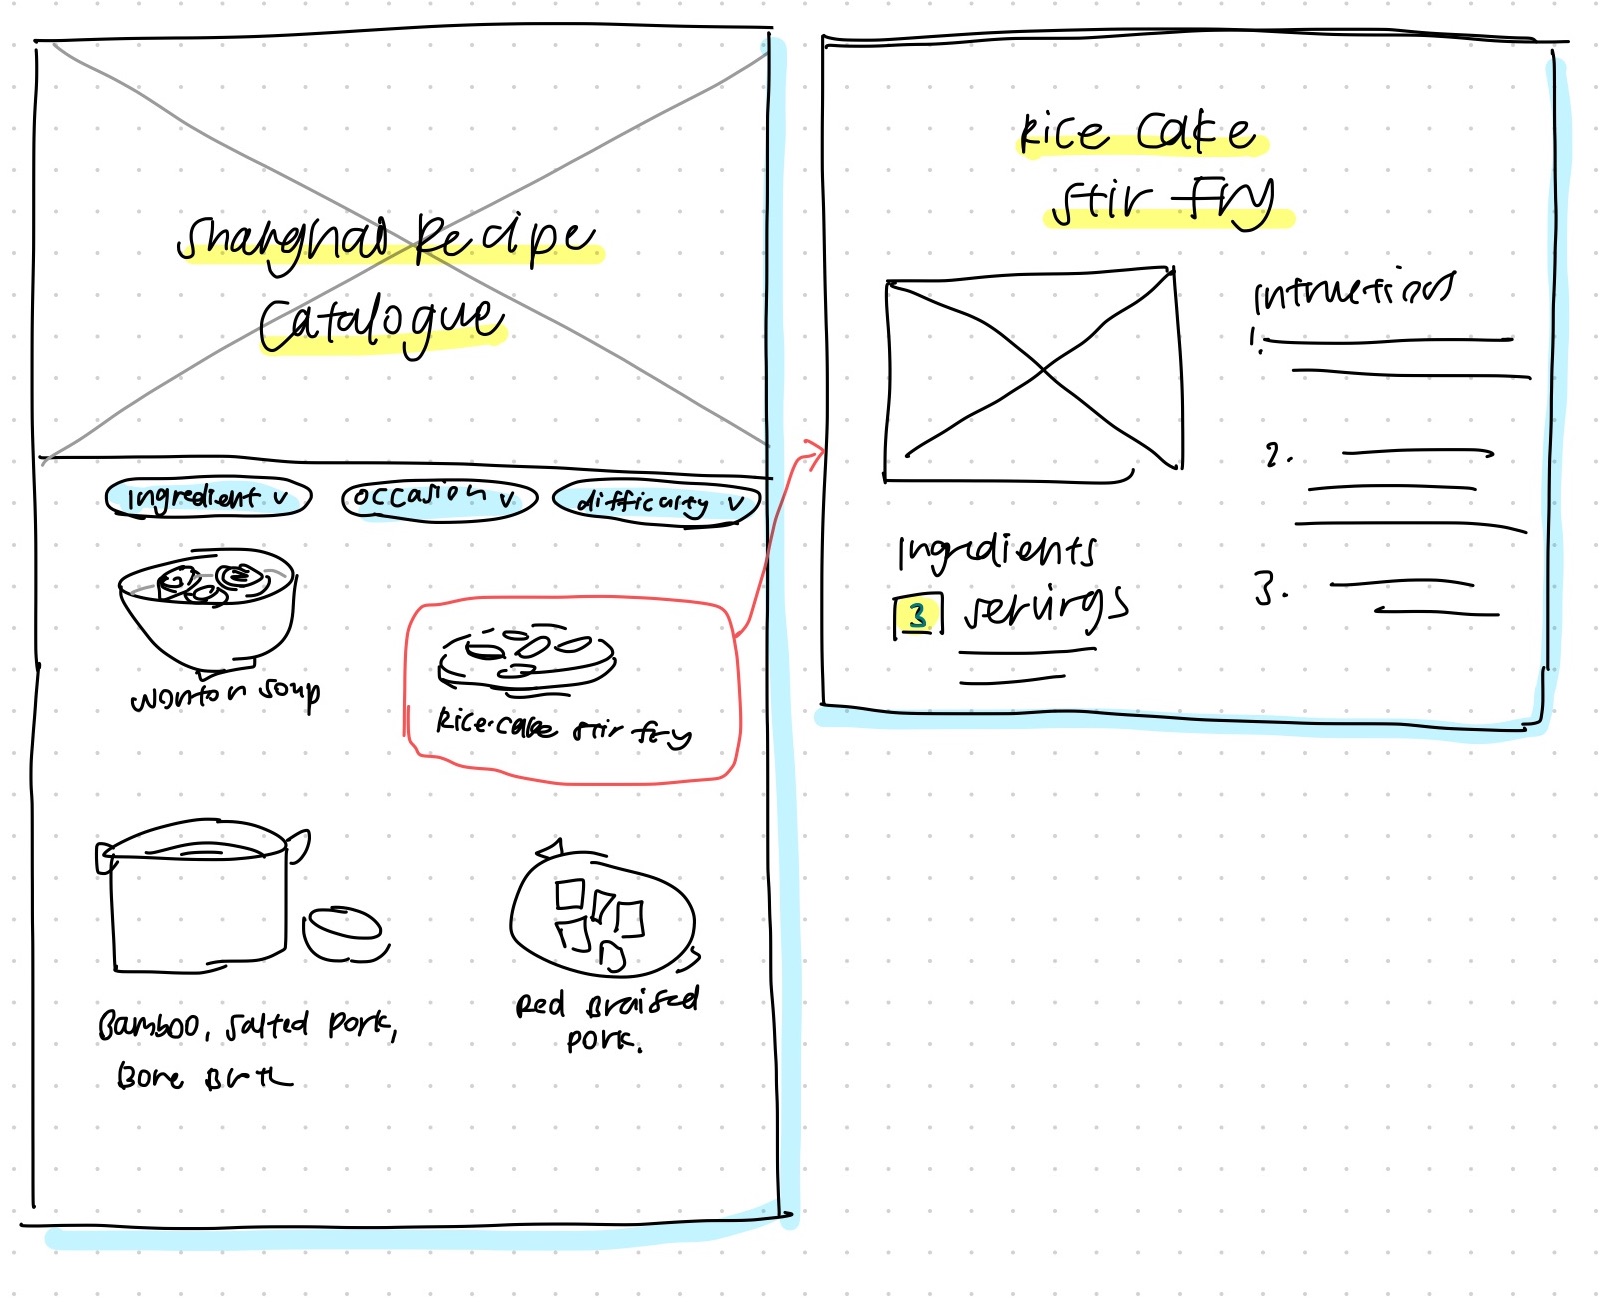 Shanghai Recipe
Catalogue
ingredient v
occasion v
difficulty v
Wonton soup
Rice cake stir fry
Bamboo, Salted Pork,
Bone Brth
Red Braised
Pork.
Rice Cake
stir fry
Intructions
1.
2.
3.
Ingredients
3 servings